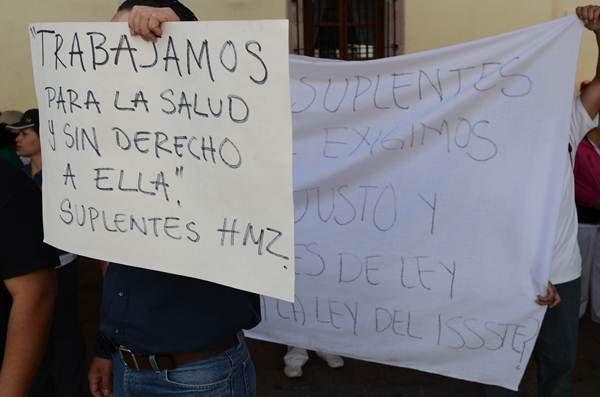 "TRABAJAMOS
PARA LA SALUD
Y SIN DERECHO
A ELLA".
SUPLENTES HMZ.
SUPLENTES
EXIGIMOS
JUSTO Y
DE LEY
LA LEY DEL ISSSTE,